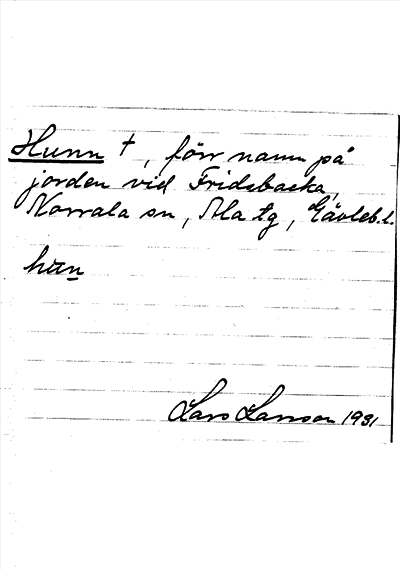 Hunn †, förr namn på
jorden vid Fridsbacka,
Norrala sn, Ala tg, Gävleb. l.
hun
Lars Larsson 1931